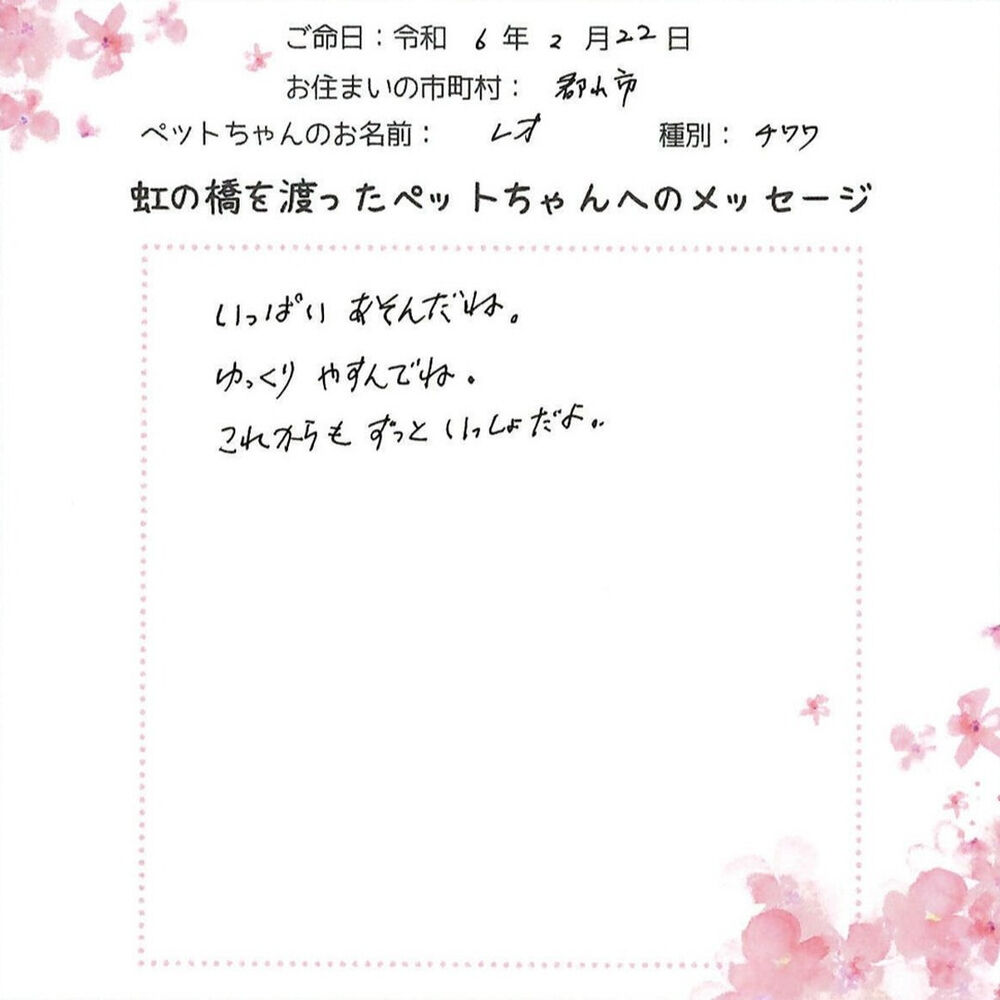 ご命日：令和 6 年 2 月 22 日
お住まいの市町村： 郡山市
ペットちゃんのお名前： レオ 種別： チワワ
虹の橋を渡ったペットちゃんへのメッセージ
いっぱい あそんだね。
ゆっくり やすんでね。
これからも ずっと いっしょだよ。